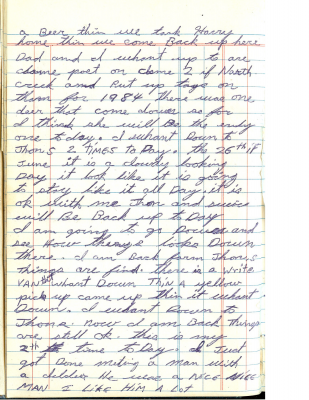 a Beer thin we took Harry
home thin we come Back up here
Dad and I whant up to are
chame post on chame 2 if North
creek and Put up tags on
them for 1984 there was one
deer that come down so for
I think she will Be the only
one today. I whant Down to
Thon,s 2 TIMES To Day. the 26th if
June it is a cloudy looking
Day it look like it is going
to stay like it all Day. it is
ok with me Thon and
will Be Back up to Day
I am going to go Down and
see How things looks Down
there. I am Back form Thon,s
things are find. there is a write
VAN that whant Down Thin A yellow
pick up came up thin it whant
Down. I whant Down to
Thons. Now I am Back things
are still ok. this is my
2th time to Day I Just
got Done miting a man with
a childer He was a NICE
MAN I LIKE HIM A LOT